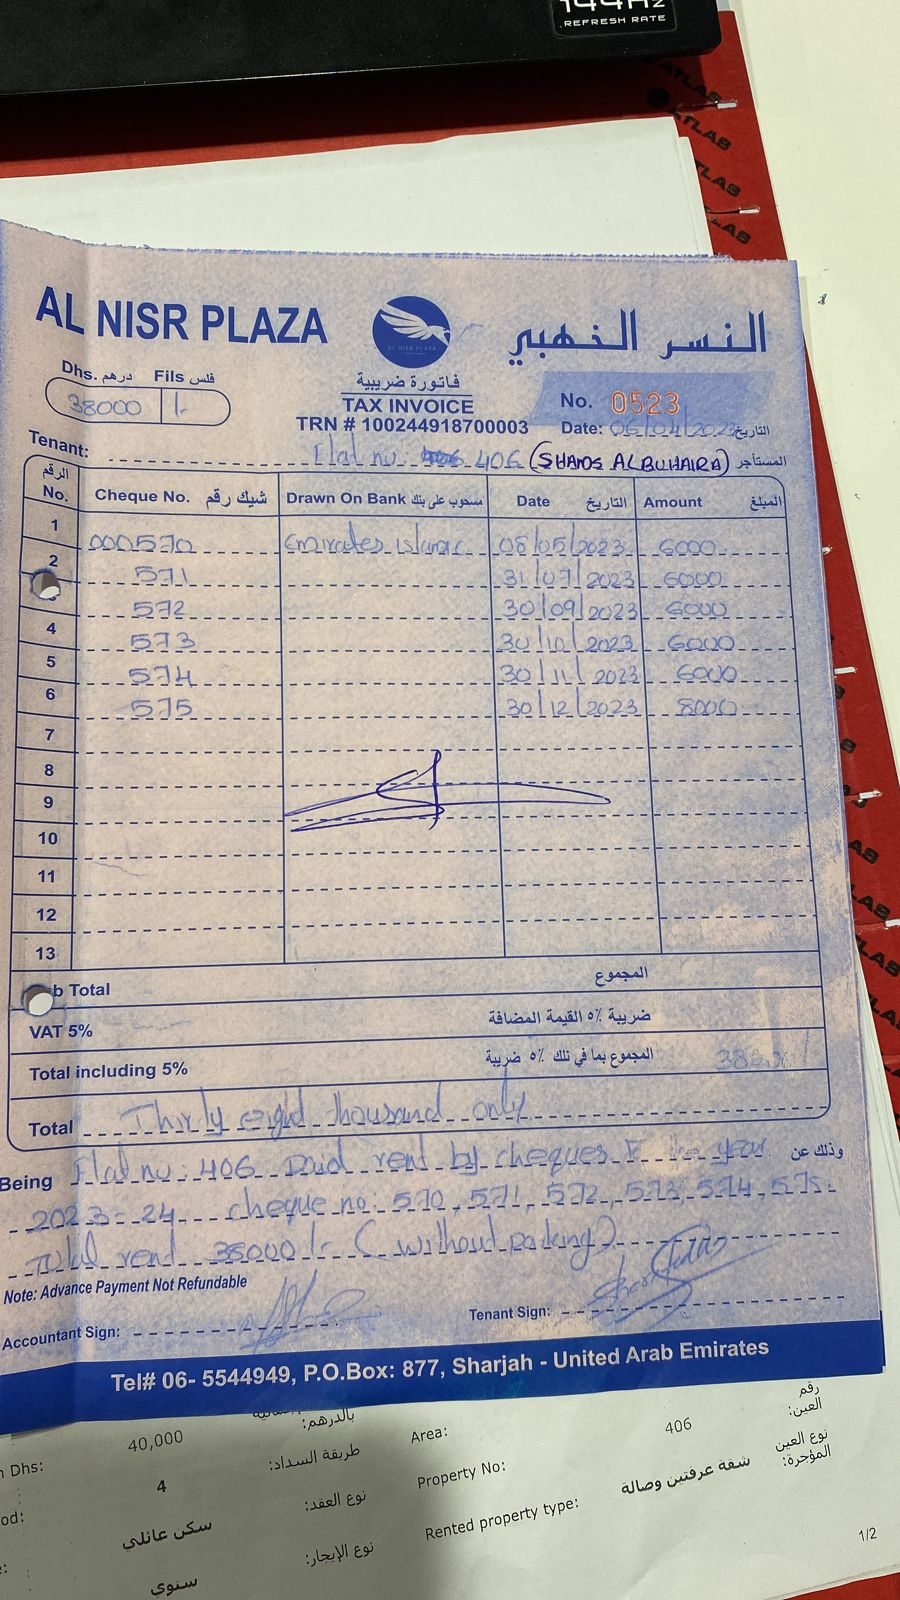 144Hz
REFRESH RATE
ATLAS
ATLAS
ATLAS
ATLAS
AL NISR PLAZA
AL NISR PLAZA
النسر الذهبي
Dhs. درهم Fils فلس
38000 /-
فاتورة ضريبية
TAX INVOICE
TRN # 100244918700003
No. 0523
Date: 06/04/2023 التاريخ
Tenant: Flat no: 406 (SHAMS ALBUHAIRA) المستأجر
الرقم No. Cheque No. شيك رقم Drawn On Bank مسحوب على بنك Date التاريخ Amount المبلغ
1 000570 Emirates islamic 08/05/2023 6000
2 571 31/07/2023 6000
572 30/09/2023 6000
4 573 30/10/2023 6000
5 574 30/11/2023 6000
6 575 30/12/2023 8000
7
8
9
10
11
12
13
b Total المجموع
VAT 5% ضريبة ٥٪ القيمة المضافة
Total including 5% المجموع بما في ذلك ٥٪ ضريبة
Total Thirty eight thousand only
Being Flat no: 406 Paid rent by cheques the year وذلك عن
2023-24 cheque no: 570, 571, 572, 573, 574, 575.
Total rent 38000/- (without parking)
Note: Advance Payment Not Refundable
Accountant Sign: Tenant Sign:
Tel# 06- 5544949, P.O.Box: 877, Sharjah - United Arab Emirates
Dhs: 40,000 بالدرهم: Area: 406 رقم العين:
4 طريقة السداد: Property No: نوع العين المؤجرة:
سكن عائلي نوع العقد: Rented property type: شقة غرفتين وصالة
سنوي نوع الإيجار:
1/2